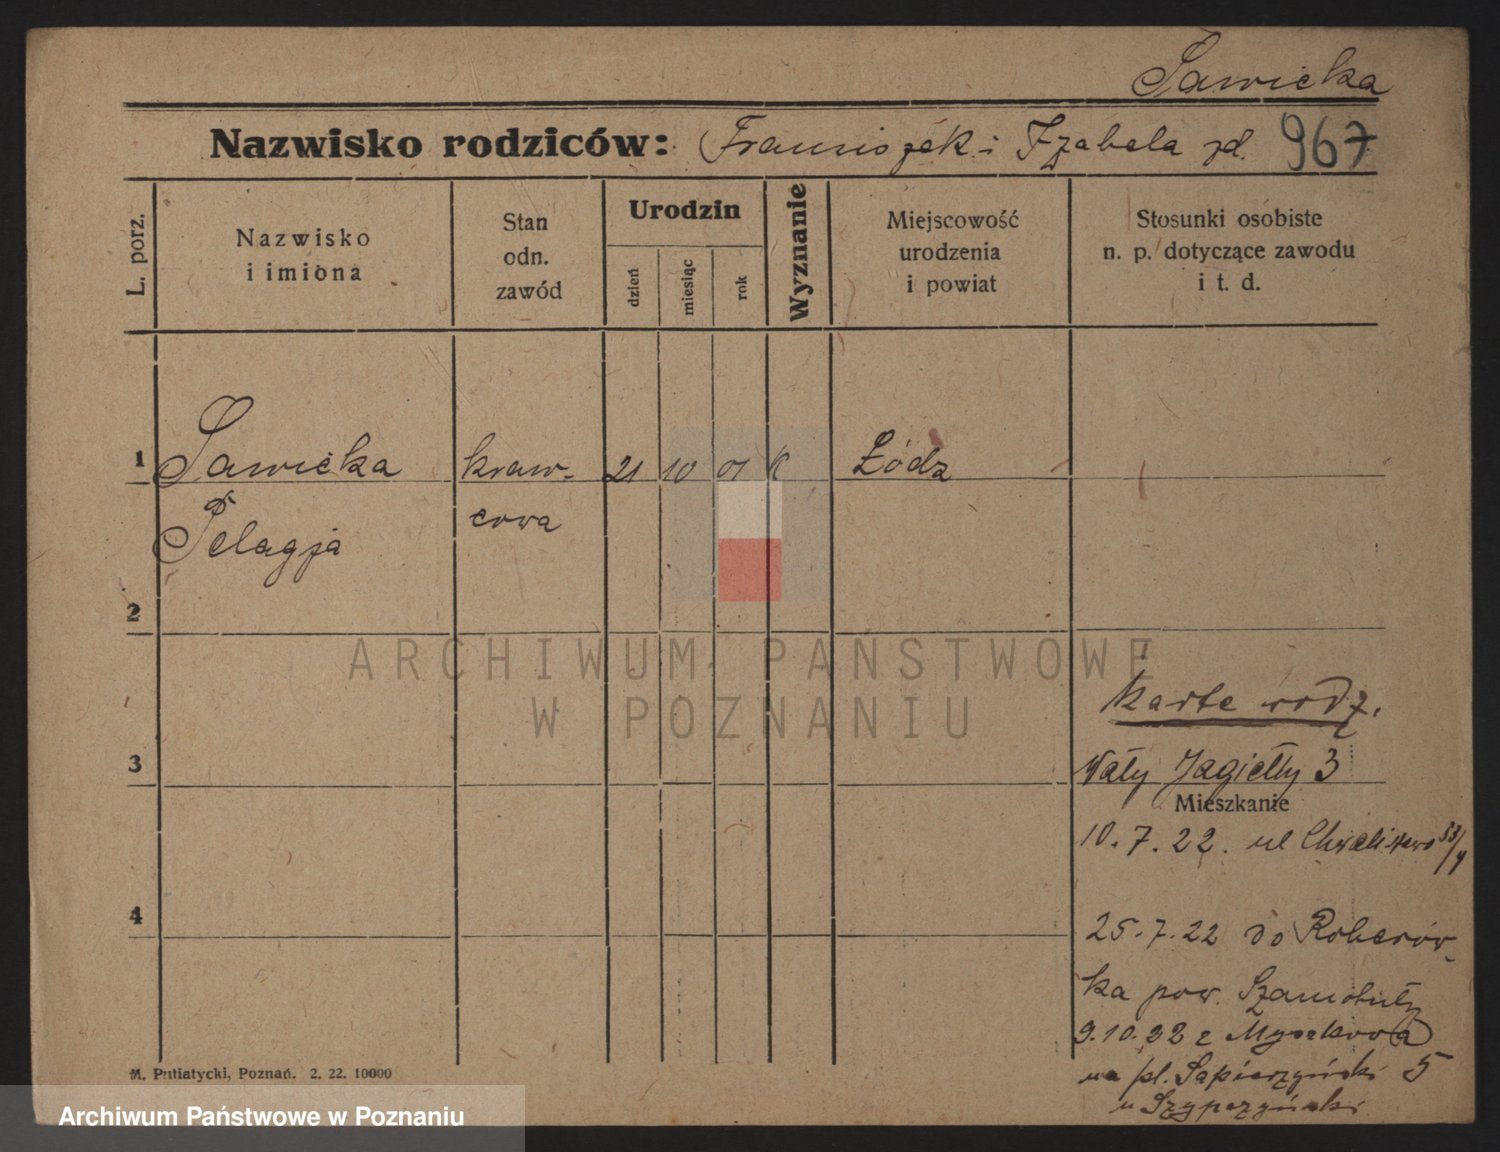 Sawicka
Nazwisko rodziców: Franciszek i Izabela zd. 967
L. porz.
Nazwisko
i imiona
Stan
odn.
zawód
Urodzin
dzień
miesiąc
rok
Wyznanie
Miejscowość
urodzenia
i powiat
Stosunki osobiste
n. p. dotyczące zawodu
i t. d.
1 Sawicka kraw- 21 10 01 K Łódz
Pelagja cowa
2
ARCHIWUM PAŃSTWOWE
W POZNANIU
karta rodz.
3 Wały Jagiełły 3
Mieszkanie
10.7.22. ul Chwaliszewo 53/4
4
25.7.22 do
ka pow. Szamotuły
9.10.22 z Myszkowa
na pl. Sapieżyński 5
u
M. Putiatycki, Poznań. 2. 22. 10000
Archiwum Państwowe w Poznaniu